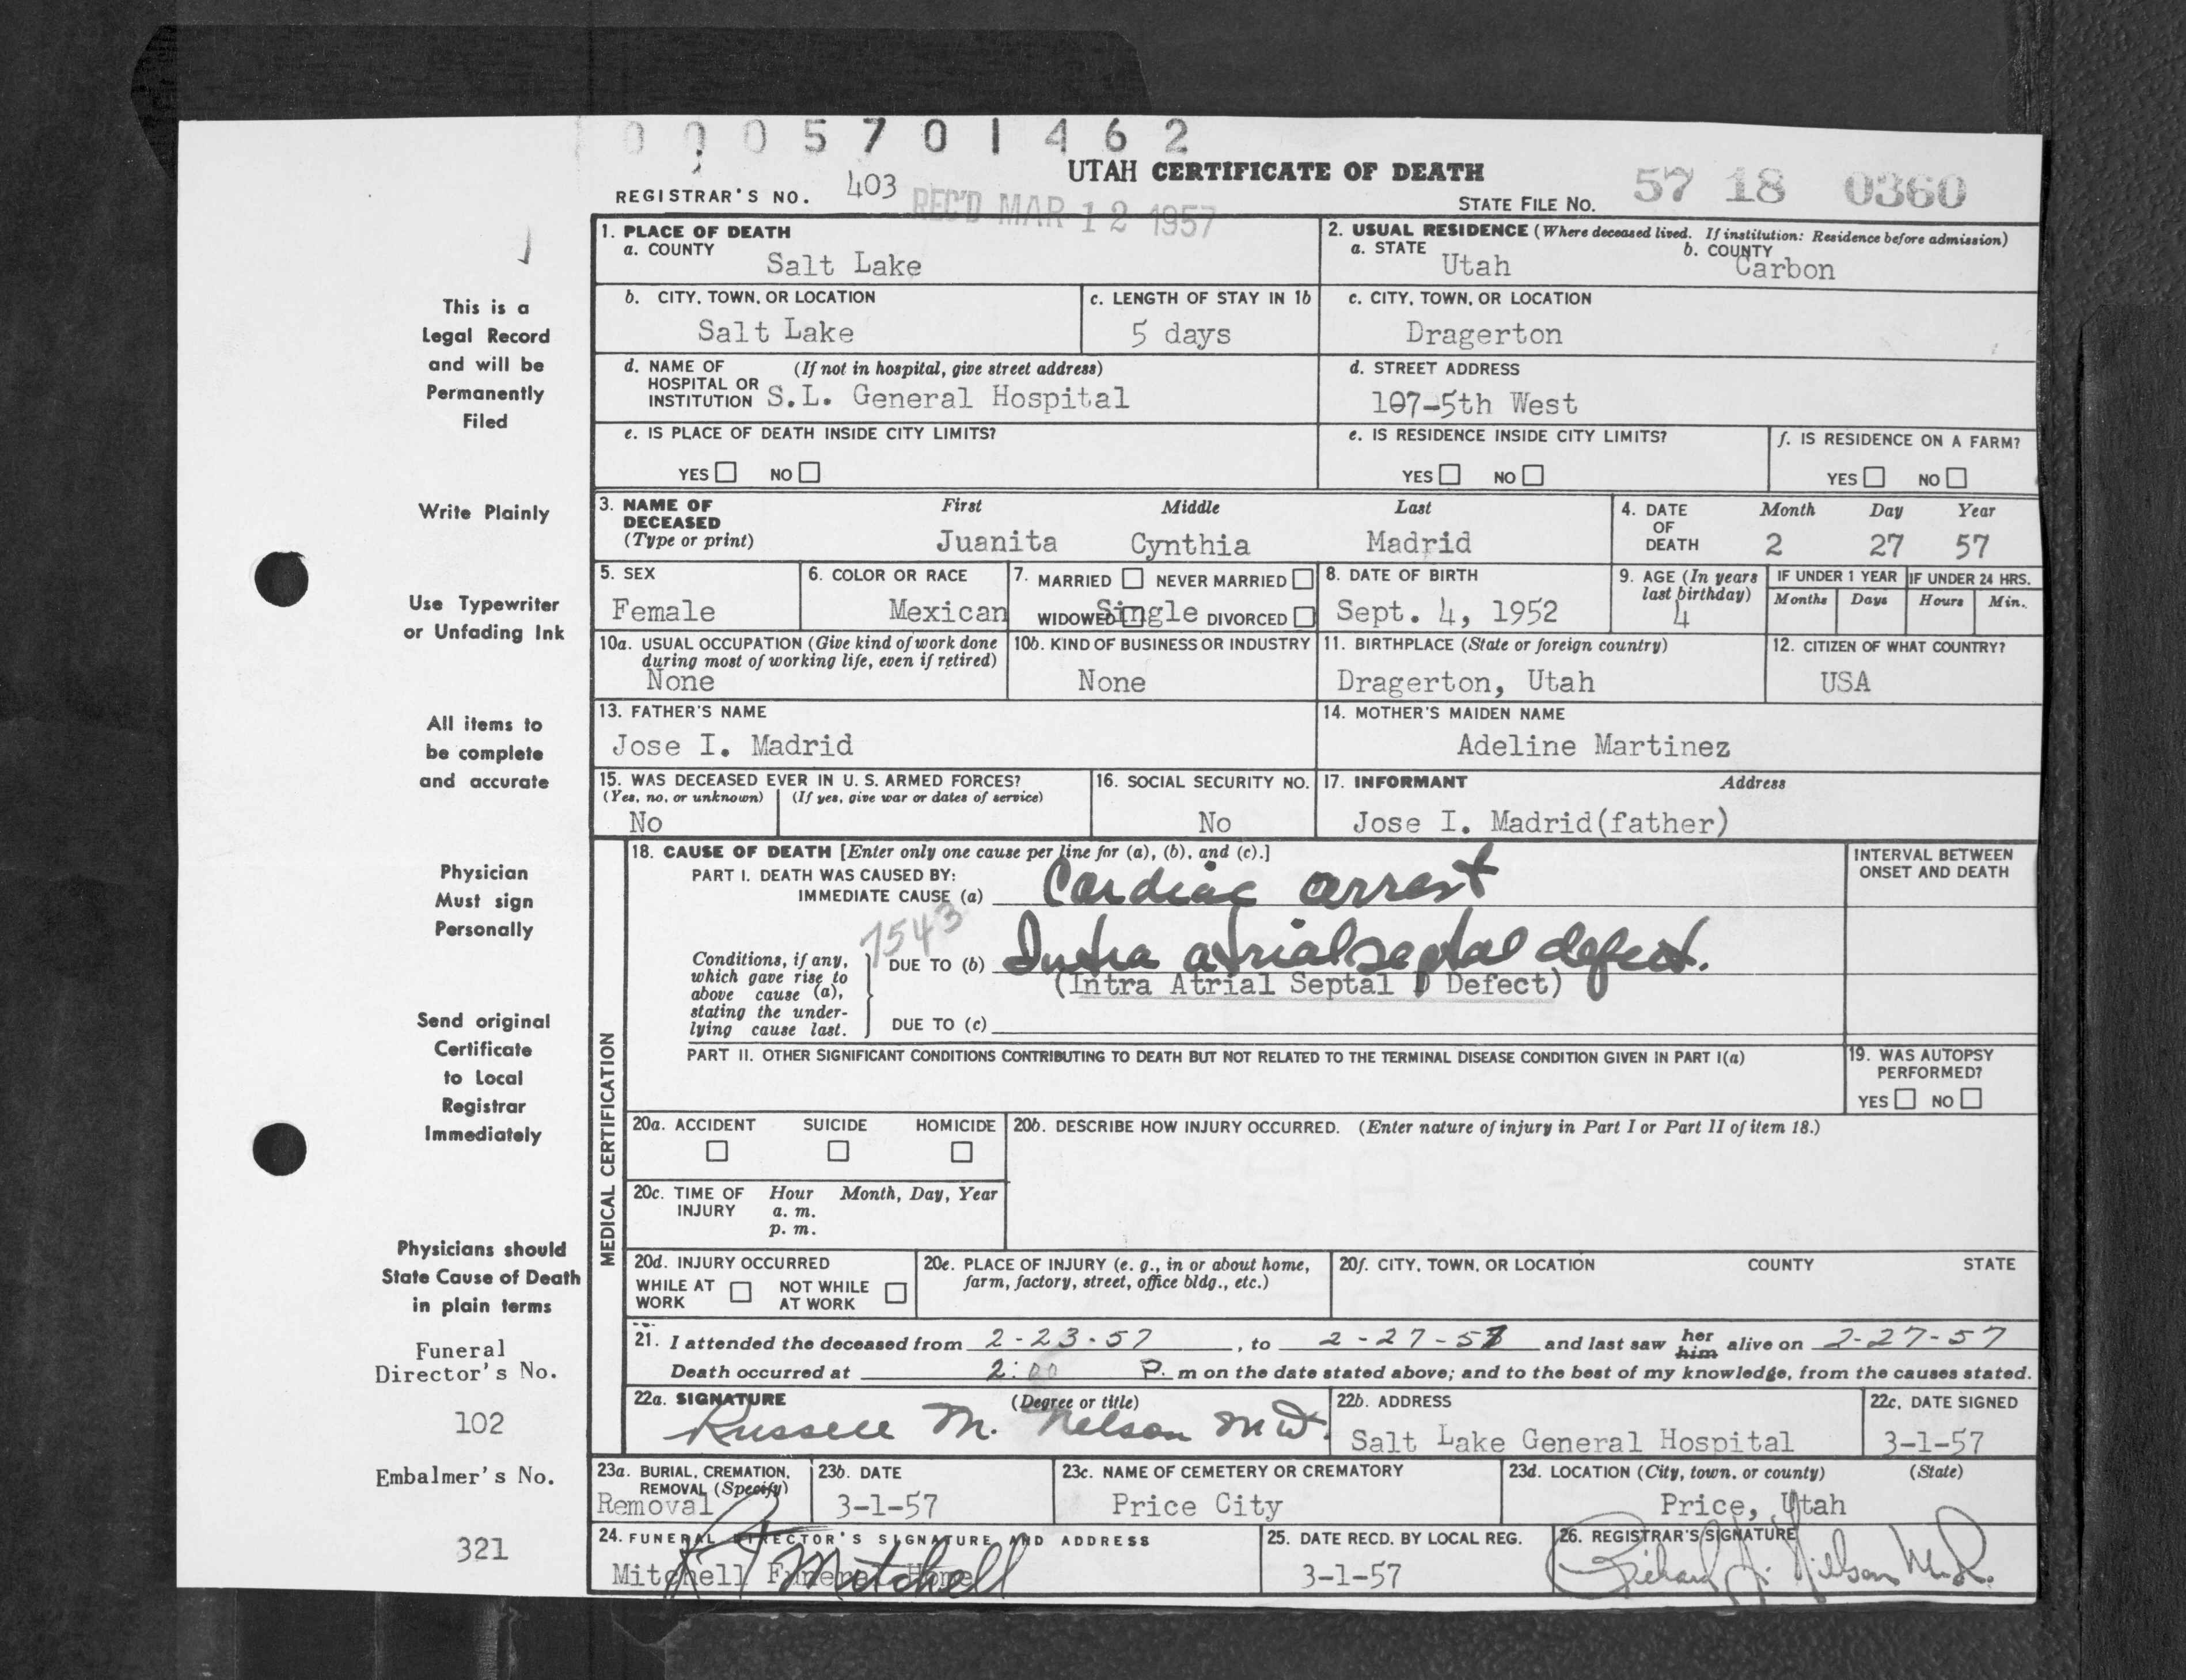 0005701462
UTAH CERTIFICATE OF DEATH
REGISTRAR'S NO. 403
REC'D MAR 12 1957
STATE FILE NO. 57 18 0360
This is a
Legal Record
and will be
Permanently
Filed
Write Plainly
Use Typewriter
or Unfading Ink
All items to
be complete
and accurate
Physician
Must sign
Personally
Send original
Certificate
to Local
Registrar
Immediately
Physicians should
State Cause of Death
in plain terms
Funeral
Director's No.
102
Embalmer's No.
321
1. PLACE OF DEATH
a. COUNTY
Salt Lake
2. USUAL RESIDENCE (Where deceased lived. If institution: Residence before admission)
a. STATE Utah
b. COUNTY Carbon
b. CITY, TOWN, OR LOCATION
Salt Lake
c. LENGTH OF STAY IN 1b
5 days
c. CITY, TOWN, OR LOCATION
Dragerton
d. NAME OF (If not in hospital, give street address)
HOSPITAL OR
INSTITUTION S.L. General Hospital
d. STREET ADDRESS
107-5th West
e. IS PLACE OF DEATH INSIDE CITY LIMITS?
YES NO
e. IS RESIDENCE INSIDE CITY LIMITS?
YES NO
f. IS RESIDENCE ON A FARM?
YES NO
3. NAME OF
DECEASED
(Type or print)
First Middle Last
Juanita Cynthia Madrid
4. DATE
OF
DEATH
Month Day Year
2 27 57
5. SEX
Female
6. COLOR OR RACE
Mexican
7. MARRIED NEVER MARRIED
WIDOWED Single DIVORCED
8. DATE OF BIRTH
Sept. 4, 1952
9. AGE (In years
last birthday)
4
IF UNDER 1 YEAR
Months Days
IF UNDER 24 HRS.
Hours Min.
10a. USUAL OCCUPATION (Give kind of work done
during most of working life, even if retired)
None
10b. KIND OF BUSINESS OR INDUSTRY
None
11. BIRTHPLACE (State or foreign country)
Dragerton, Utah
12. CITIZEN OF WHAT COUNTRY?
USA
13. FATHER'S NAME
Jose I. Madrid
14. MOTHER'S MAIDEN NAME
Adeline Martinez
15. WAS DECEASED EVER IN U. S. ARMED FORCES?
(Yes, no, or unknown) (If yes, give war or dates of service)
No
16. SOCIAL SECURITY NO.
No
17. INFORMANT Address
Jose I. Madrid(father)
MEDICAL CERTIFICATION
18. CAUSE OF DEATH [Enter only one cause per line for (a), (b), and (c).]
PART I. DEATH WAS CAUSED BY:
IMMEDIATE CAUSE (a) Cardiac arrest
INTERVAL BETWEEN
ONSET AND DEATH
7543
Conditions, if any,
which gave rise to
above cause (a),
stating the under-
lying cause last.
DUE TO (b) Intra atrial septal defect.
(Intra Atrial Septal D Defect)
DUE TO (c)
PART II. OTHER SIGNIFICANT CONDITIONS CONTRIBUTING TO DEATH BUT NOT RELATED TO THE TERMINAL DISEASE CONDITION GIVEN IN PART I(a)
19. WAS AUTOPSY
PERFORMED?
YES NO
20a. ACCIDENT SUICIDE HOMICIDE
20b. DESCRIBE HOW INJURY OCCURRED. (Enter nature of injury in Part I or Part II of item 18.)
20c. TIME OF Hour Month, Day, Year
INJURY a. m.
p. m.
20d. INJURY OCCURRED
WHILE AT NOT WHILE
WORK AT WORK
20e. PLACE OF INJURY (e. g., in or about home,
farm, factory, street, office bldg., etc.)
20f. CITY, TOWN, OR LOCATION COUNTY STATE
21. I attended the deceased from 2-23-57, to 2-27-57 and last saw her him alive on 2-27-57
Death occurred at 2:00 P. m on the date stated above; and to the best of my knowledge, from the causes stated.
22a. SIGNATURE (Degree or title)
Russell M. Nelson MD.
22b. ADDRESS
Salt Lake General Hospital
22c. DATE SIGNED
3-1-57
23a. BURIAL, CREMATION,
REMOVAL (Specify)
Removal
23b. DATE
3-1-57
23c. NAME OF CEMETERY OR CREMATORY
Price City
23d. LOCATION (City, town, or county) (State)
Price, Utah
24. FUNERAL DIRECTOR'S SIGNATURE AND ADDRESS
Mitchell Funeral Home
Mitchell
25. DATE RECD. BY LOCAL REG.
3-1-57
26. REGISTRAR'S SIGNATURE
Richard J. Nilson M.D.